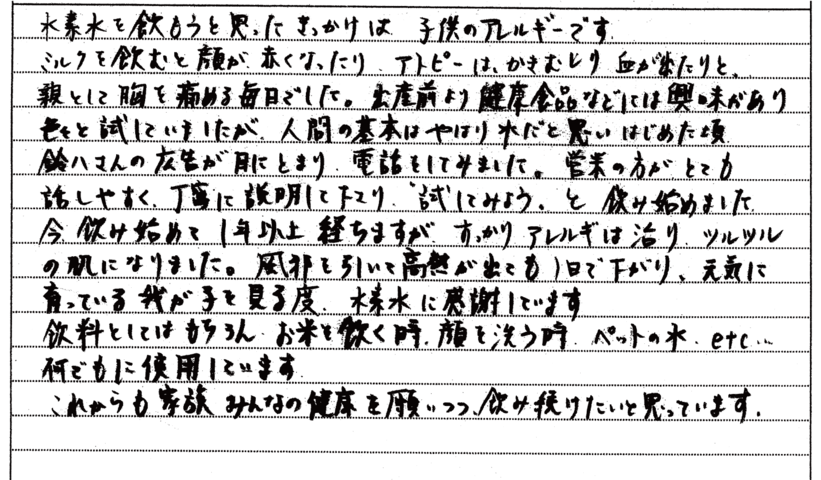 水素水を飲もうと思ったきっかけは 子供のアレルギーです
ミルクを飲むと顔が赤くなったり、アトピーは、かきむしり 血が出たりと、
親として胸を痛める毎日でした。出産前より健康食品などには興味があり
色々と試していましたが、人間の基本はやはり水だと思いはじめた頃
鈴八さんの広告が目にとまり、電話をしてみました。営業の方がとても
話しやすく、丁寧に説明して下さり、"試してみよう、と飲み始めました
今 飲み始めて 1年以上 経ちますが、すっかりアレルギは治り、ツルツル
の肌になりました。風邪を引いて高熱が出ても1日で下がり、元気に
育っている我が子を見る度、水素水に感謝しています
飲料としてはもちろん、お米を飲く時、顔を洗う時、ペットの水、etc...
何でもに使用しています
これからも家族みんなの健康を願いつつ、飲み続けたいと思っています。